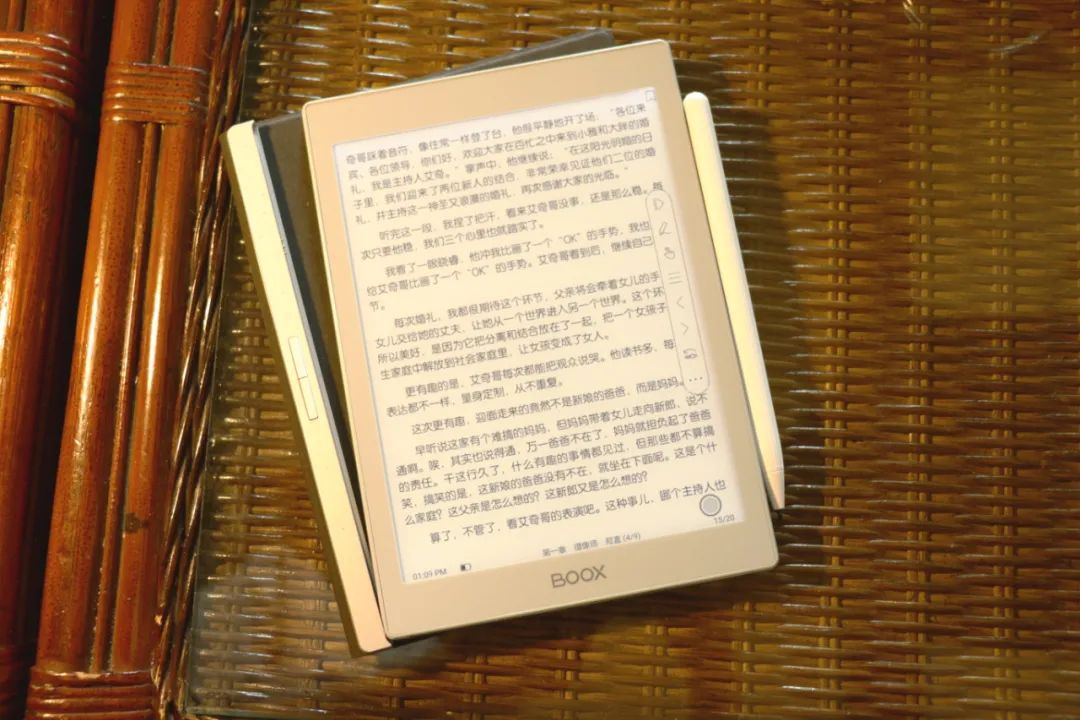 奇哥踩着音符，像往常一样登了台，他很平静地开了场：“各位来
宾、各位领导，你们好，欢迎大家在百忙之中来到小雅和大胖的婚
礼，我是主持人艾奇。”掌声中，他继续说：“在这阳光明媚的日
子里，我们迎来了两位新人的结合，非常荣幸见证他们二位的婚
礼，并主持这一神圣又浪漫的婚礼，再次感谢大家的光临。”
听完这一段，我捏了把汗，看来艾奇哥没事，还是那么稳。每
次只要他稳，我们三个心里也就踏实了。
我看了一眼晓睿，他冲我比画了一个“OK”的手势，我也
给艾奇哥比画了一个“OK”的手势。艾奇哥看到后，继续自己
节。
每次婚礼，我都很期待这个环节，父亲将会牵着女儿的手
女儿交给她的丈夫，让她从一个世界进入另一个世界。这个环
所以美好，是因为它把分离和结合放在了一起，把一个女孩子
生家庭中解放到社会家庭里，让女孩变成了女人。
更有趣的是，艾奇哥每次都能把观众说哭。他读书多，每
表达都不一样，量身定制，从不重复。
这次更有趣，迎面走来的竟然不是新娘的爸爸，而是妈妈。
早听说这家有个难搞的妈妈，但妈妈带着女儿走向新郎，说不
通啊。唉，其实也说得通，万一爸爸不在了，妈妈就担负起了爸爸
的责任。干这行久了，什么有趣的事情都见过，但那些都不算搞
笑，搞笑的是，这新娘的爸爸没有不在，就坐在下面呢。这是个什
么家庭？这父亲是怎么想的？这新郎又是怎么想的？
算了，不管了，看艾奇哥的表演吧。这种事儿，哪个主持人也
15/20
第一章 摄像师 郑嘉 (4/9)
01:09 PM
BOOX